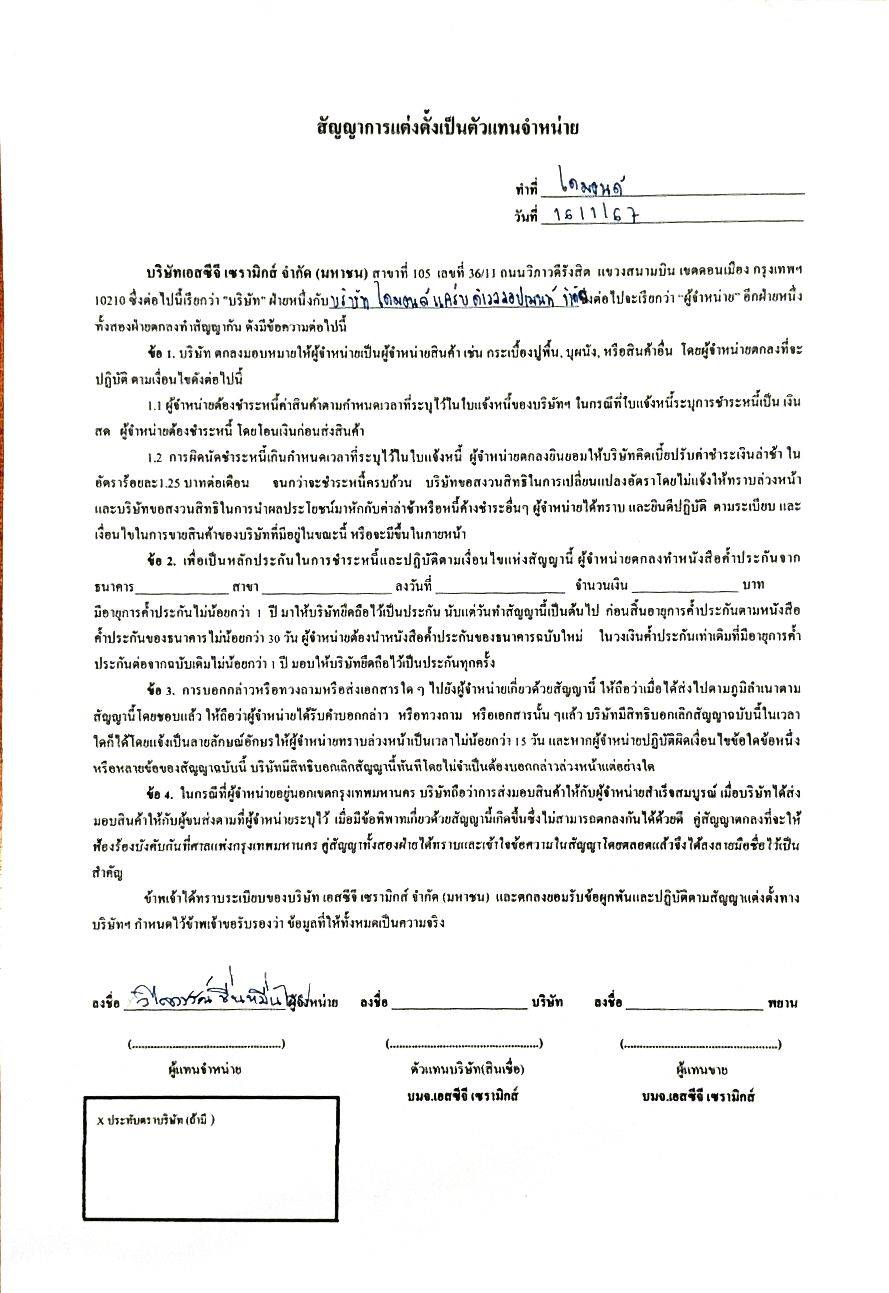 สัญญาการแต่งตั้งเป็นตัวแทนจำหน่าย
ทำที่ ไดมอนด์
วันที่ 16/1/67
บริษัทเอสซีจี เซรามิกส์ จำกัด (มหาชน) สาขาที่ 105 เลขที่ 36/11 ถนนวิภาวดีรังสิต แขวงสนามบิน เขตดอนเมือง กรุงเทพฯ
10210 ซึ่งต่อไปนี้เรียกว่า "บริษัท" ฝ่ายหนึ่งกับ บริษัท ไดมอนด์ ดีเวลลอปเมนท์ จำกัด ซึ่งต่อไปจะเรียกว่า "ผู้จำหน่าย" อีกฝ่ายหนึ่ง
ทั้งสองฝ่ายตกลงทำสัญญากัน ดังมีข้อความต่อไปนี้
ข้อ 1. บริษัท ตกลงมอบหมายให้ผู้จำหน่ายเป็นผู้จำหน่ายสินค้า เช่น กระเบื้องปูพื้น, บุผนัง, หรือสินค้าอื่น โดยผู้จำหน่ายตกลงที่จะ
ปฏิบัติ ตามเงื่อนไขดังต่อไปนี้
1.1 ผู้จำหน่ายต้องชำระหนี้ค่าสินค้าตามกำหนดเวลาที่ระบุไว้ในใบแจ้งหนี้ของบริษัทฯ ในกรณีที่ใบแจ้งหนี้ระบุการชำระหนี้เป็น เงิน
สด ผู้จำหน่ายต้องชำระหนี้ โดยโอนเงินก่อนส่งสินค้า
1.2 การผิดนัดชำระหนี้เกินกำหนดเวลาที่ระบุไว้ในใบแจ้งหนี้ ผู้จำหน่ายตกลงยินยอมให้บริษัทคิดเบี้ยปรับค่าชำระเงินล่าช้า ใน
อัตราร้อยละ1.25 บาทต่อเดือน จนกว่าจะชำระหนี้ครบถ้วน บริษัทขอสงวนสิทธิในการเปลี่ยนแปลงอัตราโดยไม่แจ้งให้ทราบล่วงหน้า
และบริษัทขอสงวนสิทธิในการนำผลประโยชน์มาหักกับค่าล่าช้าหรือหนี้ค้างชำระอื่นๆ ผู้จำหน่ายได้ทราบ และยินดีปฏิบัติ ตามระเบียบ และ
เงื่อนไขในการขายสินค้าของบริษัทที่มีอยู่ในขณะนี้ หรือจะมีขึ้นในภายหน้า
ข้อ 2. เพื่อเป็นหลักประกันในการชำระหนี้และปฏิบัติตามเงื่อนไขแห่งสัญญานี้ ผู้จำหน่ายตกลงทำหนังสือค้ำประกันจาก
ธนาคาร สาขา ลงวันที่ จำนวนเงิน บาท
มีอายุการค้ำประกันไม่น้อยกว่า 1 ปี มาให้บริษัทยึดถือไว้เป็นประกัน นับแต่วันทำสัญญานี้เป็นต้นไป ก่อนสิ้นอายุการค้ำประกันตามหนังสือ
ค้ำประกันของธนาคารไม่น้อยกว่า 30 วัน ผู้จำหน่ายต้องนำหนังสือค้ำประกันของธนาคารฉบับใหม่ ในวงเงินค้ำประกันเท่าเดิมที่มีอายุการค้ำ
ประกันต่อจากฉบับเดิมไม่น้อยกว่า 1 ปี มอบให้บริษัทยึดถือไว้เป็นประกันทุกครั้ง
ข้อ 3. การบอกกล่าวหรือทวงถามหรือส่งเอกสารใด ๆ ไปยังผู้จำหน่ายเกี่ยวด้วยสัญญานี้ ให้ถือว่าเมื่อได้ส่งไปตามภูมิลำเนาตาม
สัญญานี้โดยชอบแล้ว ให้ถือว่าผู้จำหน่ายได้รับคำบอกกล่าว หรือทวงถาม หรือเอกสารนั้น ๆแล้ว บริษัทมีสิทธิบอกเลิกสัญญาฉบับนี้ในเวลา
ใดก็ได้โดยแจ้งเป็นลายลักษณ์อักษรให้ผู้จำหน่ายทราบล่วงหน้าเป็นเวลาไม่น้อยกว่า 15 วัน และหากผู้จำหน่ายปฏิบัติผิดเงื่อนไขข้อใดข้อหนึ่ง
หรือหลายข้อของสัญญาฉบับนี้ บริษัทมีสิทธิบอกเลิกสัญญานี้ทันทีโดยไม่จำเป็นต้องบอกกล่าวล่วงหน้าแต่อย่างใด
ข้อ 4. ในกรณีที่ผู้จำหน่ายอยู่นอกเขตกรุงเทพมหานคร บริษัทถือว่าการส่งมอบสินค้าให้กับผู้จำหน่ายสำเร็จสมบูรณ์ เมื่อบริษัทได้ส่ง
มอบสินค้าให้กับผู้ขนส่งตามที่ผู้จำหน่ายระบุไว้ เมื่อมีข้อพิพาทเกี่ยวด้วยสัญญานี้เกิดขึ้นซึ่งไม่สามารถตกลงกันได้ด้วยดี คู่สัญญาตกลงที่จะให้
ฟ้องร้องบังคับกันที่ศาลแพ่งกรุงเทพมหานคร คู่สัญญาทั้งสองฝ่ายได้ทราบและเข้าใจข้อความในสัญญาโดยตลอดแล้วจึงได้ลงลายมือชื่อไว้เป็น
สำคัญ
ข้าพเจ้าได้ทราบระเบียบของบริษัท เอสซีจี เซรามิกส์ จำกัด (มหาชน) และตกลงยอมรับข้อผูกพันและปฏิบัติตามสัญญาแต่งตั้งทาง
บริษัทฯ กำหนดไว้ข้าพเจ้าขอรับรองว่า ข้อมูลที่ให้ทั้งหมดเป็นความจริง
ลงชื่อ วิไลวรรณ์ ผู้จำหน่าย ลงชื่อ บริษัท ลงชื่อ พยาน
(..............................................) (..............................................) (..............................................)
ผู้แทนจำหน่าย ตัวแทนบริษัท(สินเชื่อ) ผู้แทนขาย
บมจ.เอสซีจี เซรามิกส์ บมจ.เอสซีจี เซรามิกส์
X ประทับตราบริษัท (ถ้ามี )